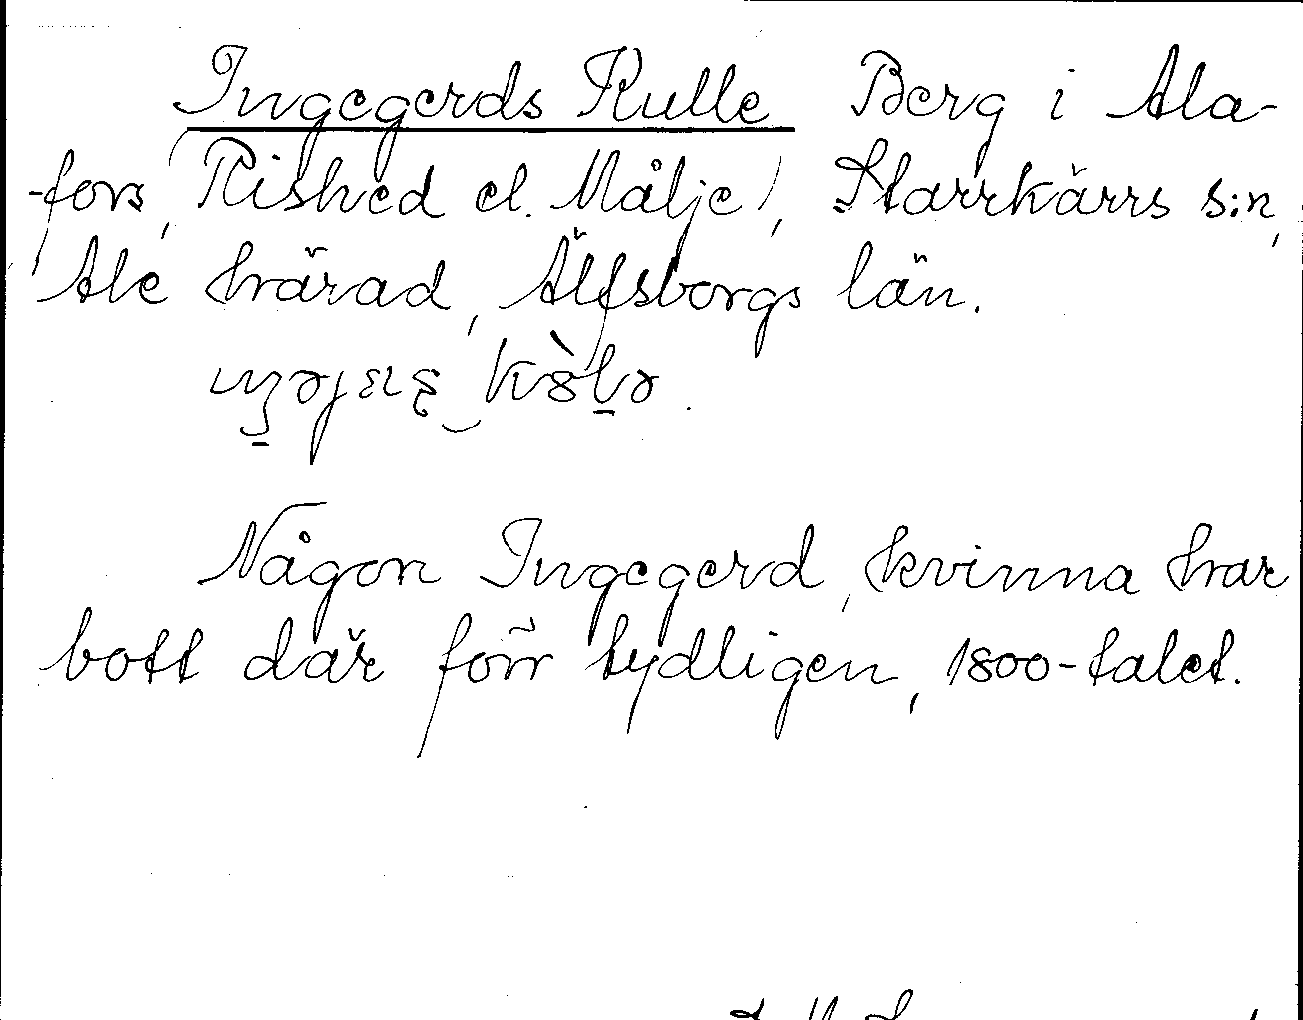 Ingegerds Kulle Berg i Ala-
-fors (Rished el. Målje), Starrkärrs s:n,
Ale härad, Älfsborgs län.
Någon Ingegerd, kvinna har
bott där förr tydligen, 1800-talet.